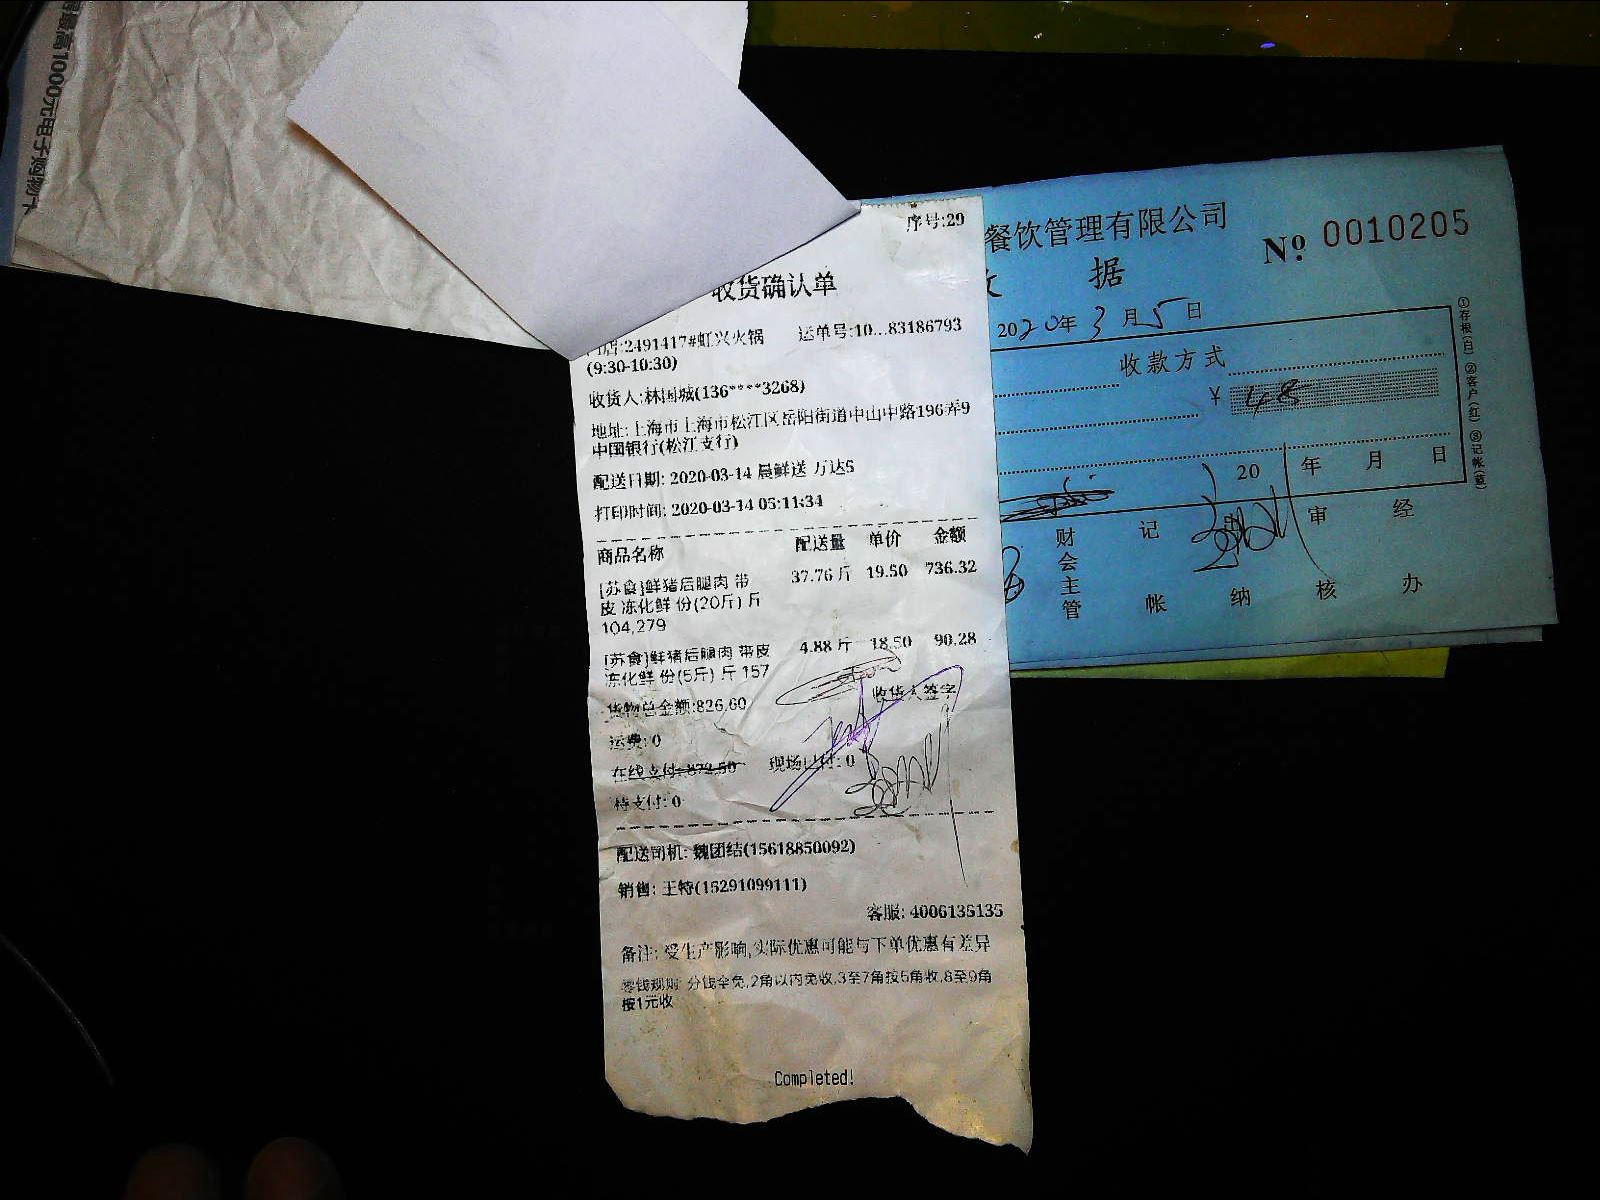 最高1000元电子购物卡
序号:29
收货确认单
门店:2491417#虹兴火锅 运单号:10...83186793
(9:30-10:30)
收货人:林国城(136****3268)
地址:上海市上海市松江区岳阳街道中山中路196弄9
中国银行(松江支行)
配送日期: 2020-03-14 晨鲜送 万达5
打印时间: 2020-03-14 05:11:34
商品名称 配送量 单价 金额
[苏食]鲜猪后腿肉 带 37.76 斤 19.50 736.32
皮 冻化鲜 份(20斤) 斤
104,279
[苏食]鲜猪后腿肉 带皮 4.88 斤 18.50 90.28
冻化鲜 份(5斤) 斤 157
收货人签字
货物总金额:826.60
运费: 0
在线支付:872.50 现场已付: 0
待支付: 0
配送司机: 魏团结(15618850092)
销售: 王特(15291099111)
客服: 4006135135
备注: 受生产影响,实际优惠可能与下单优惠有差异
零钱规则: 分钱全免,2角以内免收,3至7角按5角收,8至9角
按1元收
Completed!
餐饮管理有限公司
据
Nº 0010205
2020年3月5日
收款方式
¥ 48
20 年 月 日
财会主管 记帐 纳 审核 经办
①存根(白) ②客户(红) ③记帐(蓝)